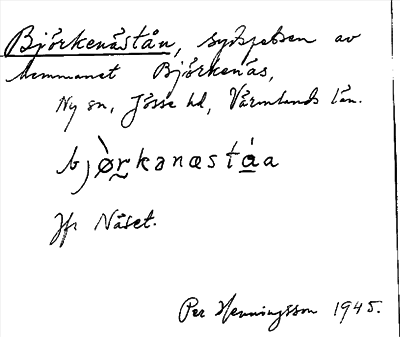 Björkenästån, sydspetsen av
hemmanet Björkenäs,
Ny sn, Jösse hd, Värmlands län.
bjø̀r̰kanæstá̱a
Jfr Näset.
Per Henningsson 1945.